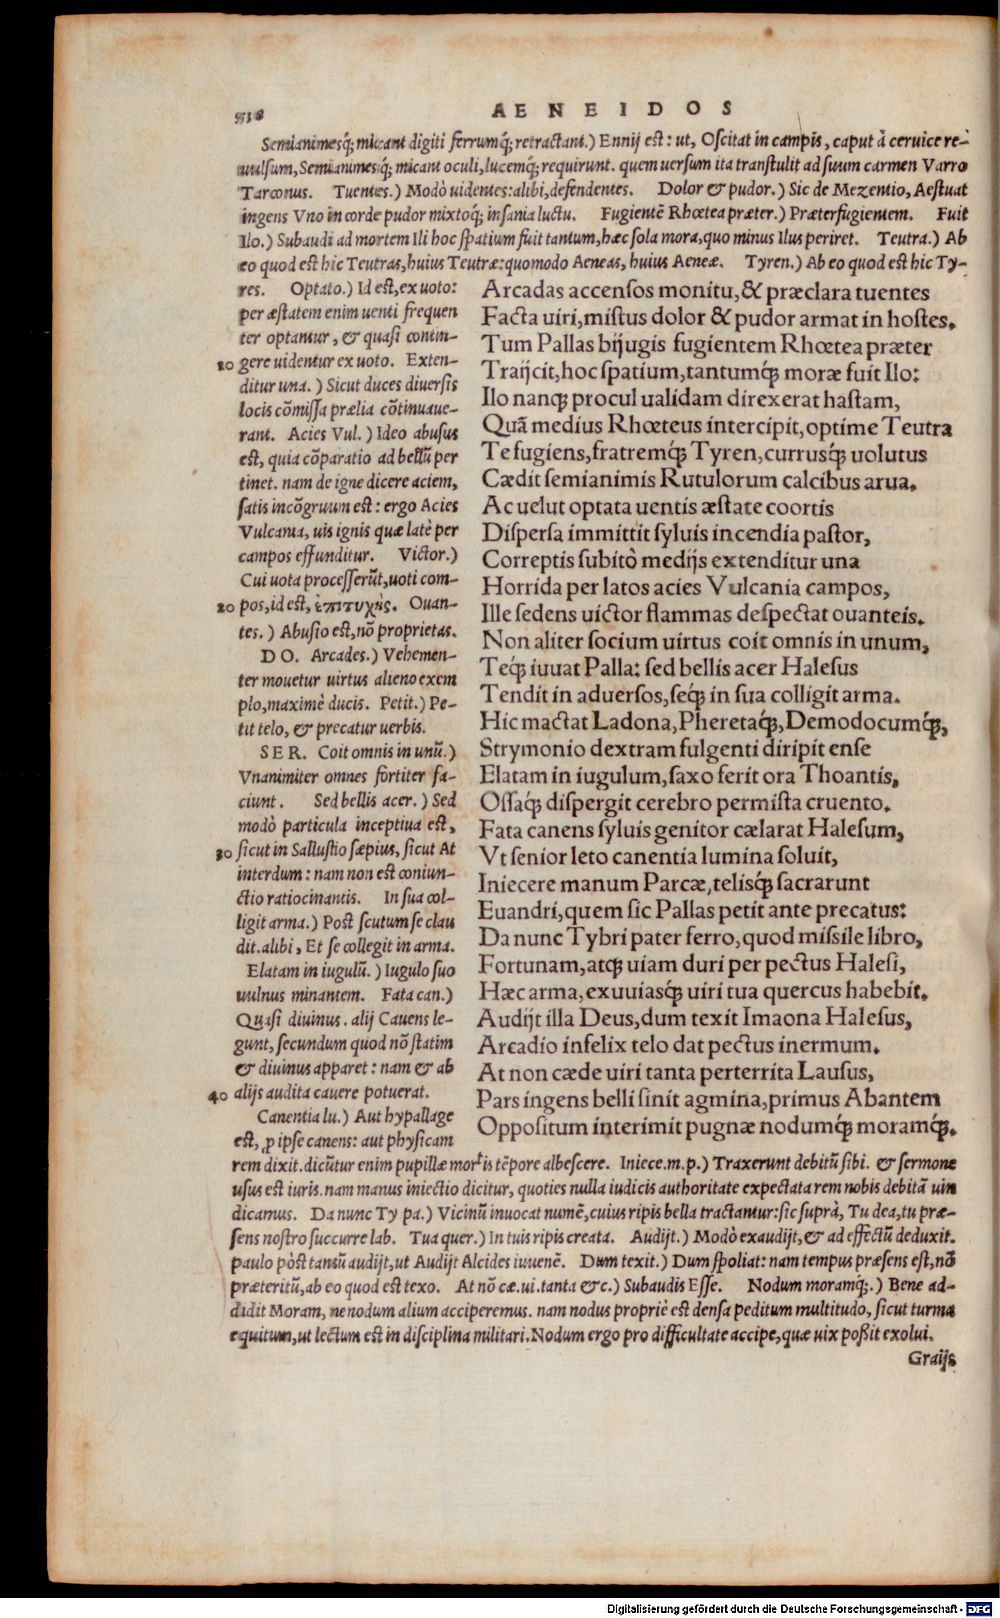 838 AENEIDOS
Semianimesq́; micant digiti ferrumq́; retractant.) Ennij est: ut, Oscitat in campis, caput à ceruice re-
uulsum, Semianimesq́; micant oculi, lucemq́; requirunt. quem uersum ita transtulit ad suum carmen Varro
Tarconus. Tuentes.) Modò uidentes: alibi, defendentes. Dolor & pudor.) Sic de Mezentio, Aestuat
ingens Vno in corde pudor mixtoq́; insania luctu. Fugientē Rhœtea præter.) Præterfugientem. Fuit
Ilo.) Subaudi ad mortem Ili hoc spatium fuit tantum, hæc sola mora, quo minus Ilus periret. Teutra.) Ab
eo quod est hic Teutras, huius Teutræ: quomodo Aeneas, huius Aeneæ. Tyren.) Ab eo quod est hic Ty-
res. Optato.) Id est, ex uoto:
per æstatem enim uenti frequen
ter optantur, & quasi contin-
10 gere uidentur ex uoto. Exten-
ditur una.) Sicut duces diuersis
locis cōmissa prælia cōtinuaue-
rant. Acies Vul.) Ideo abusus
est, quia cōparatio ad bellū per
tinet. nam de igne dicere aciem,
satis incōgruum est: ergo Acies
Vulcania, uis ignis quæ latè per
campos effunditur. Victor.)
Cui uota processerūt, uoti com-
20 pos, id est, ἐπιτυχὴς. Ouan-
tes.) Abusio est, nō proprietas.
DO. Arcades.) Vehemen-
ter mouetur uirtus alieno exem
plo, maximè ducis. Petit.) Pe-
tit telo, & precatur uerbis.
SER. Coit omnis in unū.)
Vnanimiter omnes fortiter fa-
ciunt. Sed bellis acer.) Sed
modò particula inceptiua est,
30 sicut in Sallustio sæpius, sicut At
interdum: nam non est coniun-
ctio ratiocinantis. In sua col-
ligit arma.) Post scutum se clau
dit. alibi, Et se collegit in arma.
Elatam in iugulū.) Iugulo suo
uulnus minantem. Fata can.)
Quasi diuinus. alij Cauens le-
gunt, secundum quod nō statim
& diuinus apparet: nam & ab
40 alijs audita cauere potuerat.
Canentia lu.) Aut hypallage
est, ꝓ ipse canens: aut physicam
Arcadas accensos monitu, & præclara tuentes
Facta uiri, mistus dolor & pudor armat in hostes.
Tum Pallas bijugis fugientem Rhœtea præter
Traijcit, hoc spatium, tantumq́; moræ fuit Ilo:
Ilo nanq; procul ualidam direxerat hastam,
Quā medius Rhœteus intercipit, optime Teutra
Te fugiens, fratremq́; Tyren, currusq́; uolutus
Cædit semianimis Rutulorum calcibus arua.
Ac uelut optata uentis æstate coortis
Dispersa immittit syluis incendia pastor,
Correptis subitò medijs extenditur una
Horrida per latos acies Vulcania campos,
Ille sedens uictor flammas despectat ouanteis.
Non aliter socium uirtus coit omnis in unum,
Teq́; iuuat Palla: sed bellis acer Halesus
Tendit in aduersos, seq́; in sua colligit arma.
Hic mactat Ladona, Pheretaq́;, Demodocumq́;,
Strymonio dextram fulgenti diripit ense
Elatam in iugulum, saxo ferit ora Thoantis,
Ossaq́; dispergit cerebro permista cruento.
Fata canens syluis genitor cælarat Halesum,
Vt senior leto canentia lumina soluit,
Iniecere manum Parcæ, telisq́; sacrarunt
Euandri, quem sic Pallas petit ante precatus:
Da nunc Tybri pater ferro, quod missile libro,
Fortunam, atq; uiam duri per pectus Halesi,
Hæc arma, exuuiasq́; uiri tua quercus habebit.
Audijt illa Deus, dum texit Imaona Halesus,
Arcadio infelix telo dat pectus inermum.
At non cæde uiri tanta perterrita Lausus,
Pars ingens belli sinit agmina, primus Abantem
Oppositum interimit pugnæ nodumq́; moramq́;.
rem dixit. dicūtur enim pupillæ mortis tēpore albescere. Iniece.m.p.) Traxerunt debitū sibi. & sermone
usus est iuris. nam manus iniectio dicitur, quoties nulla iudicis authoritate expectata rem nobis debitā uin
dicamus. Da nunc Ty pa.) Vicinū inuocat numē, cuius ripis bella tractantur: sic suprà, Tu dea, tu præ-
sens nostro succurre lab. Tua quer.) In tuis ripis creata. Audijt.) Modò exaudijt, & ad effectū deduxit.
paulo pòst tantū audijt, ut Audijt Alcides iuuenē. Dum texit.) Dum spoliat: nam tempus præsens est, nō
præteritū, ab eo quod est texo. At nō cæ.ui.tanta &c.) Subaudis Esse. Nodum moramq́;.) Bene ad-
didit Moram, ne nodum alium acciperemus. nam nodus propriè est densa peditum multitudo, sicut turma
equitum, ut lectum est in disciplina militari. Nodum ergo pro difficultate accipe, quæ uix poßit exolui.
Graijs
Digitalisierung gefördert durch die Deutsche Forschungsgemeinschaft - DFG